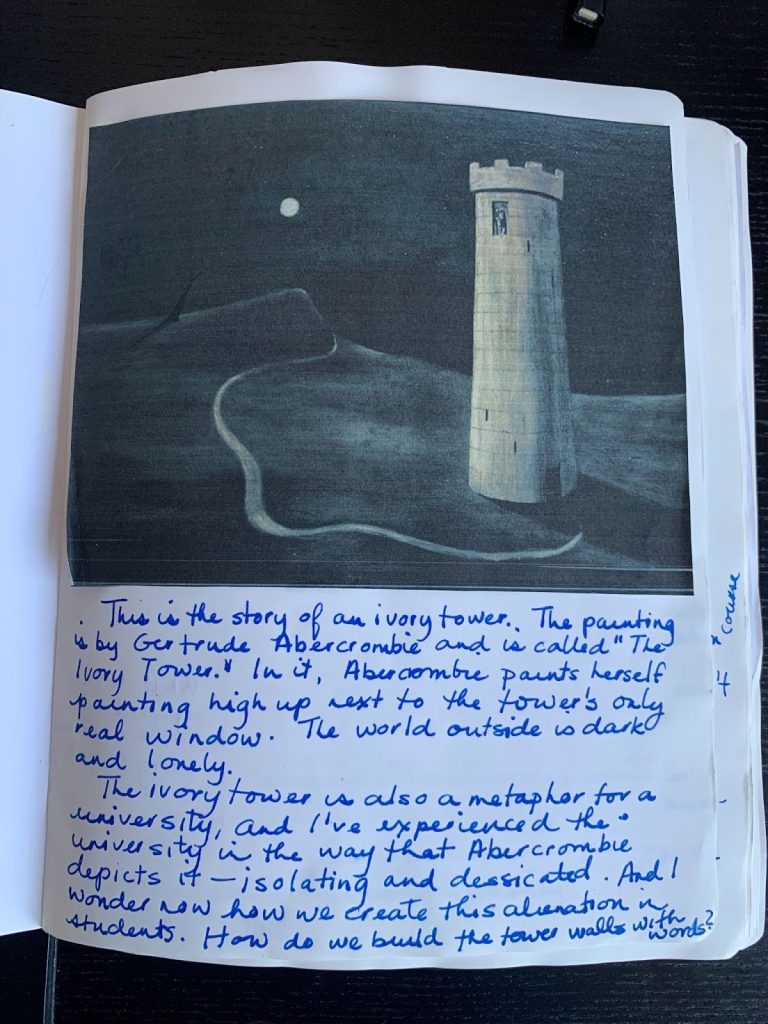 . This is the story of an ivory tower. The painting
is by Gertrude Abercrombie and is called "The
Ivory Tower." In it, Abercombie paints herself
painting high up next to the tower's only
real window. The world outside is dark
and lonely.
The ivory tower is also a metaphor for a
university, and I've experienced the
university in the way that Abercrombie
depicts it — isolating and dessicated. And I
wonder now how we create this alienation in
students. How do we build the tower walls with
words?
course